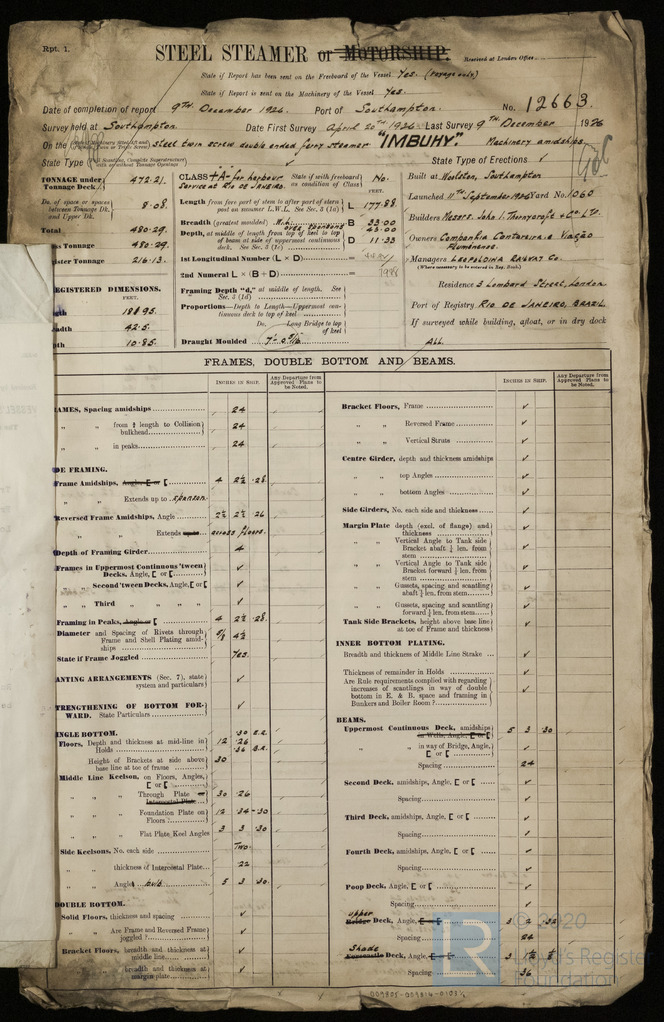 Rpt. 1.
STEEL STEAMER or MOTORSHIP.
Received at London Office
State if Report has been sent on the Freeboard of the Vessel Yes. (Voyage only)
State if Report is sent on the Machinery of the Vessel Yes.
Date of completion of report 9TH December 1926. Port of Southampton. No. 12663.
Survey held at Southampton. Date First Survey April 20th 1926 Last Survey 9TH December 1926
On the Steel twin screw double ended ferry steamer "IMBUHY." Machinery amidships.
State Type State Type of Erections ✓
TONNAGE under Tonnage Deck 472.21.
Do. of space or spaces between Tonnage Dk. and Upper Dk. 8.08.
Total 480.29.
ss Tonnage 480.29.
ister Tonnage 216.13.
EGISTERED DIMENSIONS.
FEET.
gth
eadth 42.5.
pth 10.85.
CLASS +A- for harbour Service at Rio de Janeiro. State if with freeboard as condition of Class No.
FEET.
Length from fore part of stem to after part of stern post on summer L.W.L. See Sec. 3 (1a) L 177.88
Breadth (greatest moulded) B 33.00
over sponsons 43.00
Depth, at middle of length from top of keel to top of beam at side of uppermost continuous deck. See Sec. 3 (1c) D 11.33
1st Longitudinal Number (L × D) =
2nd Numeral L × (B + D) =
Framing Depth "d," at middle of length. See Sec. 3 (1d)
Proportions—Depth to Length—Uppermost continuous deck to top of keel
Do. Long Bridge to top of keel
Draught Moulded
Built at Woolston, Southampton
Launched 11th September 1926 Yard No. 1060
Builders Messrs. John I. Thornycroft & Co. Ltd.
Owners Companhia Cantareira e Viação Fluminense.
Managers Leopoldina Railway Co.
(Where necessary to be entered in Reg. Book.)
Residence 3 Lombard Street, London
Port of Registry Rio de Janeiro, Brazil
If surveyed while building, afloat, or in dry dock
All.
FRAMES, DOUBLE BOTTOM AND BEAMS.
INCHES IN SHIP.
Any Departure from Approved Plans to be Noted.
INCHES IN SHIP.
Any Departure from Approved Plans to be Noted.
AMES, Spacing amidships 24
„ „ from ⅕ length to Collision bulkhead 24
„ „ in peaks 24
DE FRAMING.
Frame Amidships, Angle, E or [ 4 2½ .28
„ „ Extends up to sponson
Reversed Frame Amidships, Angle 2½ 2½ .26
„ „ Extends across floors.
Depth of Framing Girder 4
Frames in Uppermost Continuous 'tween Decks, Angle, E or [ ✓
„ Second 'tween Decks, Angle, E or [ ✓
„ Third „ „ „ „ ✓
Framing in Peaks, Angle or [ 4 2½ .28
Diameter and Spacing of Rivets through Frame and Shell Plating amidships 5/8 4½
State if Frame Joggled Yes.
ANTING ARRANGEMENTS (Sec. 7), state system and particulars ✓
TRENGTHENING OF BOTTOM FORWARD. State Particulars ✓
INGLE BOTTOM.
Floors, Depth and thickness at mid-line in Holds 12 .26
.30 E.R.
.36 B.R.
Height of Brackets at side above base line at toe of frame 30
Middle Line Keelson, on Floors, Angles, E or [ ✓
„ „ Through Plate or Intercostal Plate 30 .26
„ „ Foundation Plate on Floors 12 .34-.30
„ „ Flat Plate Keel Angles 3 3 .30
Side Keelsons, No. each side Two.
„ „ thickness of Intercostal Plate .22
„ „ Angles bulb 5 3 .30.
DOUBLE BOTTOM.
Solid Floors, thickness and spacing ✓
„ „ Are Frame and Reversed Frame joggled? ✓
Bracket Floors, breadth and thickness at middle line ✓
„ „ breadth and thickness at margin plate ✓
Bracket Floors, Frame ✓
„ „ Reversed Frame ✓
„ „ Vertical Struts ✓
Centre Girder, depth and thickness amidships ✓
„ „ top Angles ✓
„ „ bottom Angles ✓
Side Girders, No. each side and thickness ✓
Margin Plate depth (excl. of flange) and thickness ✓
„ „ Vertical Angle to Tank side Bracket abaft ¼ len. from stem ✓
„ „ Vertical Angle to Tank side Bracket forward ¼ len. from stem ✓
„ „ Gussets, spacing and scantling abaft ¼ len. from stem ✓
„ „ Gussets, spacing and scantling forward ¼ len. from stem ✓
Tank Side Brackets, height above base line at toe of Frame and thickness ✓
INNER BOTTOM PLATING.
Breadth and thickness of Middle Line Strake ✓
Thickness of remainder in Holds ✓
Are Rule requirements complied with regarding increases of scantlings in way of double bottom in E. & B. space and framing in Bunkers and Boiler Room? ✓
BEAMS.
Uppermost Continuous Deck, amidships in Wells, Angle, E or [ 5 3 .30
„ „ in way of Bridge, Angle, E or [ ✓
Spacing 24
Second Deck, amidships, Angle, E or [ ✓
Spacing ✓
Third Deck, amidships, Angle, E or [ ✓
Spacing ✓
Fourth Deck, amidships, Angle, E or [ ✓
Spacing ✓
Poop Deck, Angle, E or [ ✓
Spacing ✓
Upper
Bridge Deck, Angle, E or [
Spacing 24
Shade
Forecastle Deck, Angle, E or [
Spacing 36
LR
© 2020
Lloyd's Register
Foundation